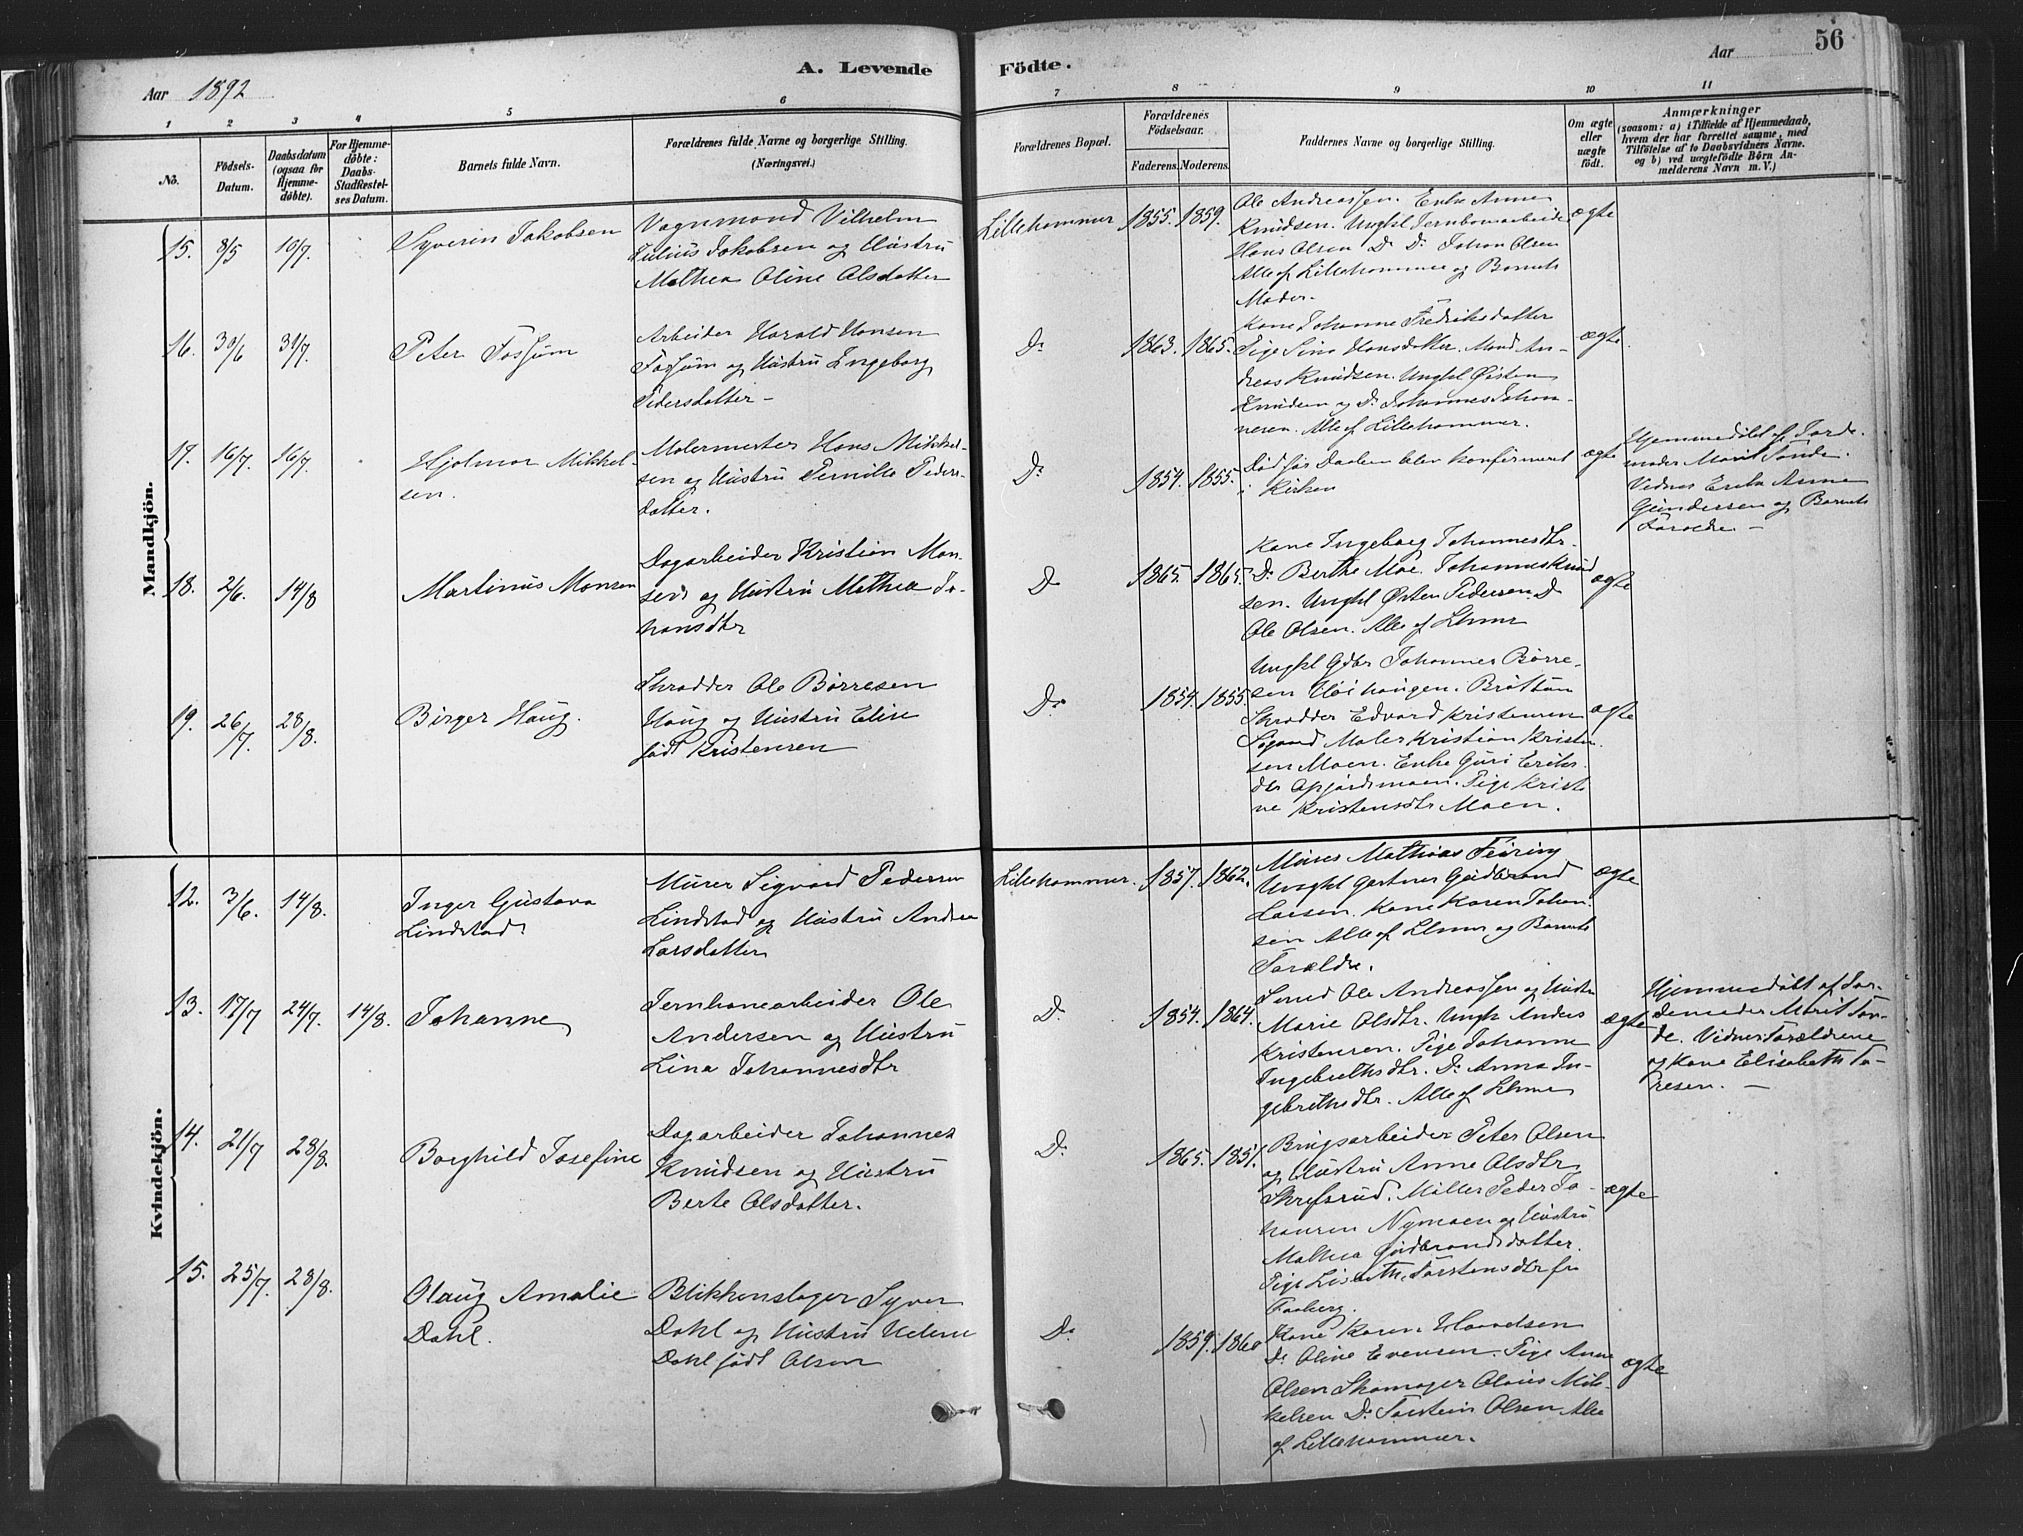 56
A. Levende
Födte.
Aar 1892
Aar
1 2 3 4 5 6 7 8 9 10 11
No.
Födsels-
Datum.
Daabsdatum
(ogsaa for
Hjemme-
døbte).
For Hjemme-
døbte:
Daabs-
Stadfæstel-
ses Datum.
Barnets fulde Navn.
Forældrenes fulde Navne og borgerlige Stilling.
(Næringsvei.)
Forældrenes Bopæl.
Forældrenes
Födselsaar.
Faderens. Moderens.
Faddernes Navne og borgerlige Stilling.
Om ægte
eller
uægte
født.
Anmærkninger
(saasom: a) i Tilfælde af Hjemmedaab,
hvem der har forrettet samme, med
Tilføielse af to Daabsvidners Navne.
og b) ved uægtefödte Börn An-
melderens Navn m. V.)
Mandkjön.
15. 8/5 10/7. Syverin Jakobsen
Vognmand Vilhelm
Julius Jakobsen og Hustru
Mathea Oline Olsdatter
Lillehammer 1855. 1859.
Ole Andreassen. Enke Anne
Knudsen. Ungkl Jernbanearbeider
Hans Olsen Do Do Johan Olsen
Alle af Lillehammer og Barnets
Moder.
ægte
16. 30/6 31/7. Peter Fossum
Arbeider Harald Hansen
Fossum og Hustru Engeborg
Pedersdatter -
Do 1863. 1865.
Kone Johanne Fredriksdatter
Pige Sina Hansdatter. Mand An-
dreas Knudsen. Ungkl Østen
Knudsen og Do Johannes Johan-
nesen. Alle af Lillehammer.
ægte.
17. 16/7. 16/7. Hjalmar Mikkel-
sen.
Malermester Hans Mikkel-
sen og Hustru Pernille Peders-
datter.
Do 1854. 1855.
Død før Daaben blev konfirmeret
i Kirken
ægte
Hjemmedøbt af Jorde-
moder Marit Sande.
Vidner Enke Anne
Gundersen og Barnets
Forældre -
18. 2/6. 14/8 Martinus Monsen
Dagarbeider Kristian Mon-
sen og Hustru Mathea Jo-
hansdtr
Do 1865. 1865.
Kone Ingeborg Johannesdtr.
Do Berthe Moe. Johannes Knud
sen. Ungkl Østen Pedersen. Do
Ole Olsen. Alle af Lhmr
ægte
19. 26/7. 28/8. Birger Haug.
Skrædder Ole Børresen
Haug og Hustru Elise
født Kristensen
Do 1854. 1855.
Ungkl Gbr Johannes Børre-
sen Høihaugen. Brøttum
Skrædder Edvard Kristensen
Maler Kristian Kristen-
sen Moen. Enke Guri Eriks-
dtr Opjordsmoen. Pige Kristi
ne Kristensdtr Moen.
ægte
Kvindekjön.
12. 3/6. 14/8. Inger Gustava
Lindstad.
Murer Sigvard Pedersen
Lindstad og Hustru Andrea
Larsdatter
Lillehammer. 1857. 1862.
Murer Mathias Feiring
Ungkl Gartner Gudbrand
Larsen. Kone Karen Johan-
sen Alle af Lhmr og Barnets
Forældre.
ægte
13. 17/7 24/7. 14/8. Johanne
Jernbanearbeider Ole
Andersen og Hustru
Lina Johannesdtr
Do 1854. 1864.
Smed Ole Andreassen og Hustru
Marie Olsdtr. Ungk Anders
Kristensen. Pige Johanne
Ingebrethsdtr. Do Anna In-
gebrethsdtr. Alle af Lhmr
ægte
Hjemmedøbt af Jor-
demoder Marit San-
de. Vidner Forældrene
og Kone Elisabeth To-
resen. -
14. 21/7 28/8. Borghild Josefine
Dagarbeider Johannes
Knudsen og Hustru
Berte Olsdatter.
Do 1865. 1857.
Brugsarbeider Peter Olsen
og Hustru Anne Olsdtr
Skrefsrud. Møller Peder Jo-
hansen Nymoen og Hustru
Mathea Gudbrandsdatter.
Pige Lisbeth Torstensdtr fra
Faaberg.
ægte
15. 25/7. 28/8. Olaug Amalie
Dahl.
Blikkenslager Syver
Dahl og Hustru Helene
Dahl født Olsen
Do 1859. 1860
Kone Karen Haavelsen
Do Oline Evensen. Pige Anne
Olsen Skomager Olaus Mik-
kelsen Do Torstein Olsen Alle
af Lillehammer.
ægte